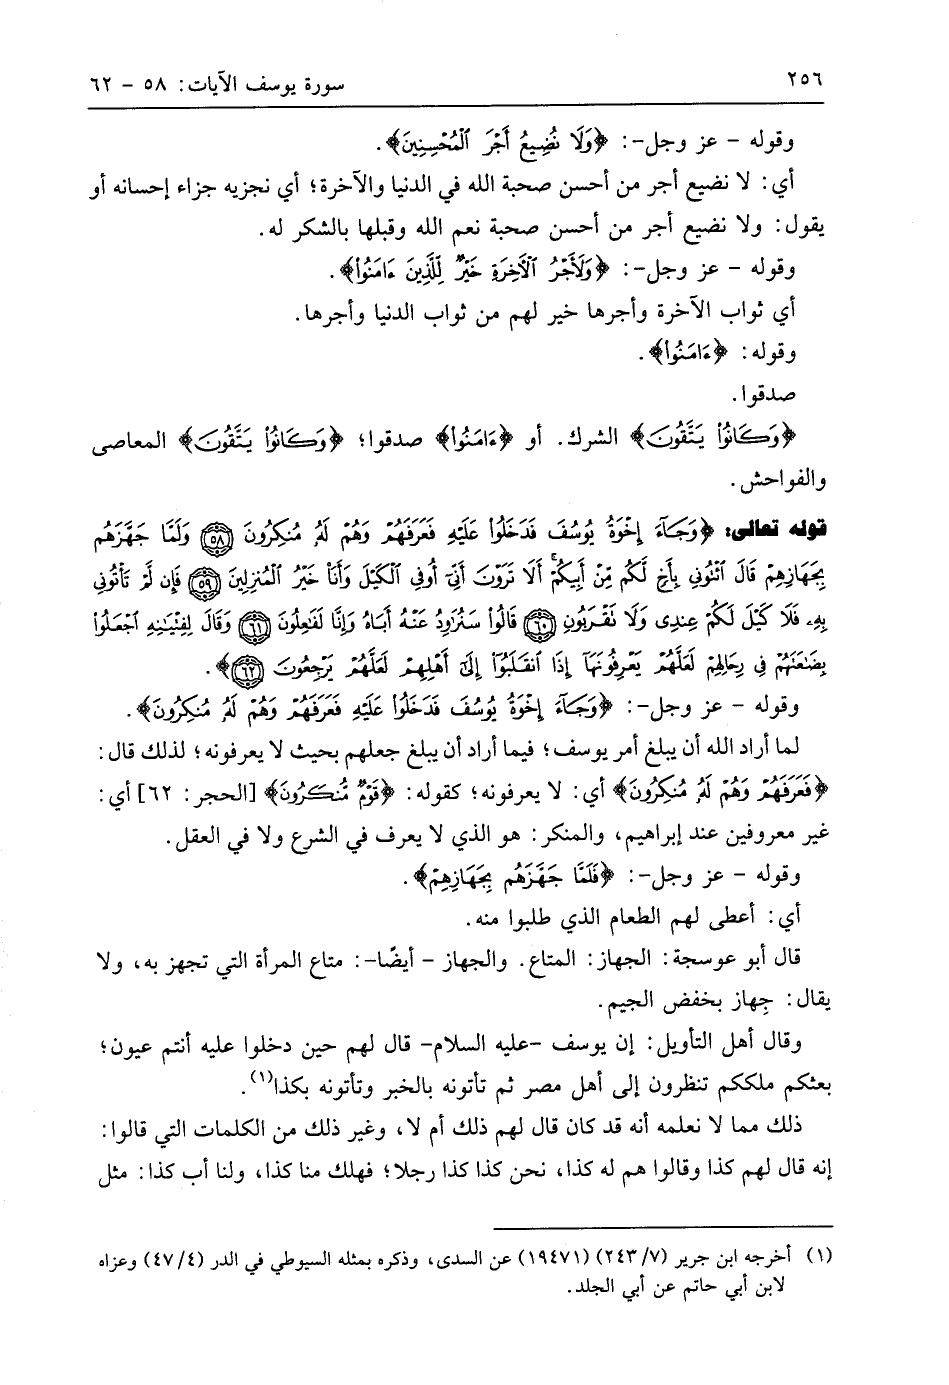 ٢٥٦ سورة يوسف الآيات: ٥٨ - ٦٢
وقوله - عز وجل-: ﴿وَلَا نُضِيعُ أَجْرَ ٱلْمُحْسِنِينَ﴾.
أي: لا نضيع أجر من أحسن صحبة الله في الدنيا والآخرة؛ أي نجزيه جزاء إحسانه أو
يقول: ولا نضيع أجر من أحسن صحبة نعم الله وقبلها بالشكر له.
وقوله - عز وجل-: ﴿وَلَأَجْرُ ٱلْآخِرَةِ خَيْرٌ لِّلَّذِينَ ءَامَنُوا۟﴾.
أي ثواب الآخرة وأجرها خير لهم من ثواب الدنيا وأجرها.
وقوله: ﴿ءَامَنُوا۟﴾.
صدقوا.
﴿وَكَانُوا۟ يَتَّقُونَ﴾ الشرك. أو ﴿ءَامَنُوا۟﴾ صدقوا؛ ﴿وَكَانُوا۟ يَتَّقُونَ﴾ المعاصى
والفواحش.
قوله تعالى: ﴿وَجَآءَ إِخْوَةُ يُوسُفَ فَدَخَلُوا۟ عَلَيْهِ فَعَرَفَهُمْ وَهُمْ لَهُۥ مُنكِرُونَ ﴿٥٨﴾ وَلَمَّا جَهَّزَهُم
بِجَهَازِهِمْ قَالَ ٱئْتُونِى بِأَخٍ لَّكُم مِّنْ أَبِيكُمْ ۚ أَلَا تَرَوْنَ أَنِّىٓ أُوفِى ٱلْكَيْلَ وَأَنَا۠ خَيْرُ ٱلْمُنزِلِينَ ﴿٥٩﴾ فَإِن لَّمْ تَأْتُونِى
بِهِۦ فَلَا كَيْلَ لَكُمْ عِندِى وَلَا تَقْرَبُونِ ﴿٦٠﴾ قَالُوا۟ سَنُرَٰوِدُ عَنْهُ أَبَاهُ وَإِنَّا لَفَٰعِلُونَ ﴿٦١﴾ وَقَالَ لِفِتْيَٰنِهِ ٱجْعَلُوا۟
بِضَٰعَتَهُمْ فِى رِحَالِهِمْ لَعَلَّهُمْ يَعْرِفُونَهَآ إِذَا ٱنقَلَبُوٓا۟ إِلَىٰٓ أَهْلِهِمْ لَعَلَّهُمْ يَرْجِعُونَ ﴿٦٢﴾﴾.
وقوله - عز وجل-: ﴿وَجَآءَ إِخْوَةُ يُوسُفَ فَدَخَلُوا۟ عَلَيْهِ فَعَرَفَهُمْ وَهُمْ لَهُۥ مُنكِرُونَ﴾.
لما أراد الله أن يبلغ أمر يوسف؛ فيما أراد أن يبلغ جعلهم بحيث لا يعرفونه؛ لذلك قال:
﴿فَعَرَفَهُمْ وَهُمْ لَهُۥ مُنكِرُونَ﴾ أي: لا يعرفونه؛ كقوله: ﴿قَوْمٌ مُّنكَرُونَ﴾ [الحجر: ٦٢] أي:
غير معروفين عند إبراهيم، والمنكر: هو الذي لا يعرف في الشرع ولا في العقل.
وقوله - عز وجل-: ﴿فَلَمَّا جَهَّزَهُم بِجَهَازِهِمْ﴾.
أي: أعطى لهم الطعام الذي طلبوا منه.
قال أبو عوسجة: الجهاز: المتاع. والجهاز - أيضًا-: متاع المرأة التي تجهز به، ولا
يقال: جِهاز بخفض الجيم.
وقال أهل التأويل: إن يوسف -عليه السلام- قال لهم حين دخلوا عليه أنتم عيون؛
بعثكم ملككم تنظرون إلى أهل مصر ثم تأتونه بالخبر وتأتونه بكذا(١).
ذلك مما لا نعلمه أنه قد كان قال لهم ذلك أم لا، وغير ذلك من الكلمات التي قالوا:
إنه قال لهم كذا وقالوا هم له كذا، نحن كذا كذا رجلا؛ فهلك منا كذا، ولنا أب كذا: مثل
(١) أخرجه ابن جرير (٢٤٣/٧) (١٩٤٧١) عن السدى، وذكره بمثله السيوطي في الدر (٤٧/٤) وعزاه
لابن أبي حاتم عن أبي الجلد.